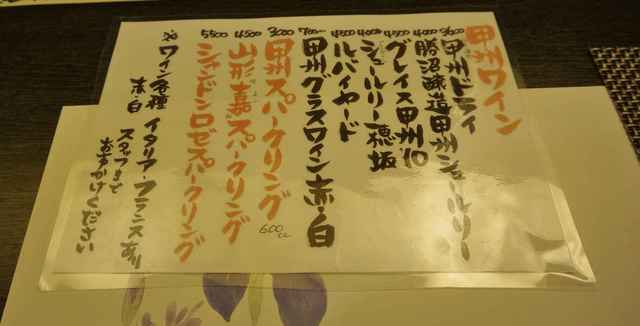 甲州ワイン
3600 甲州ドライ
4000 勝沼醸造甲州シュールリー
4500 グレイス甲州'10
4000 シュールリー穂坂
4500 ルバイヤード
700〜 甲州グラスワイン赤・白
3000 甲州スパークリング 600cc
4500 山形嘉スパークリング
5500 シャンドンロゼスパークリング
ワイン各種
赤・白
イタリア・フランスあり
スタッフまで
おたずけください